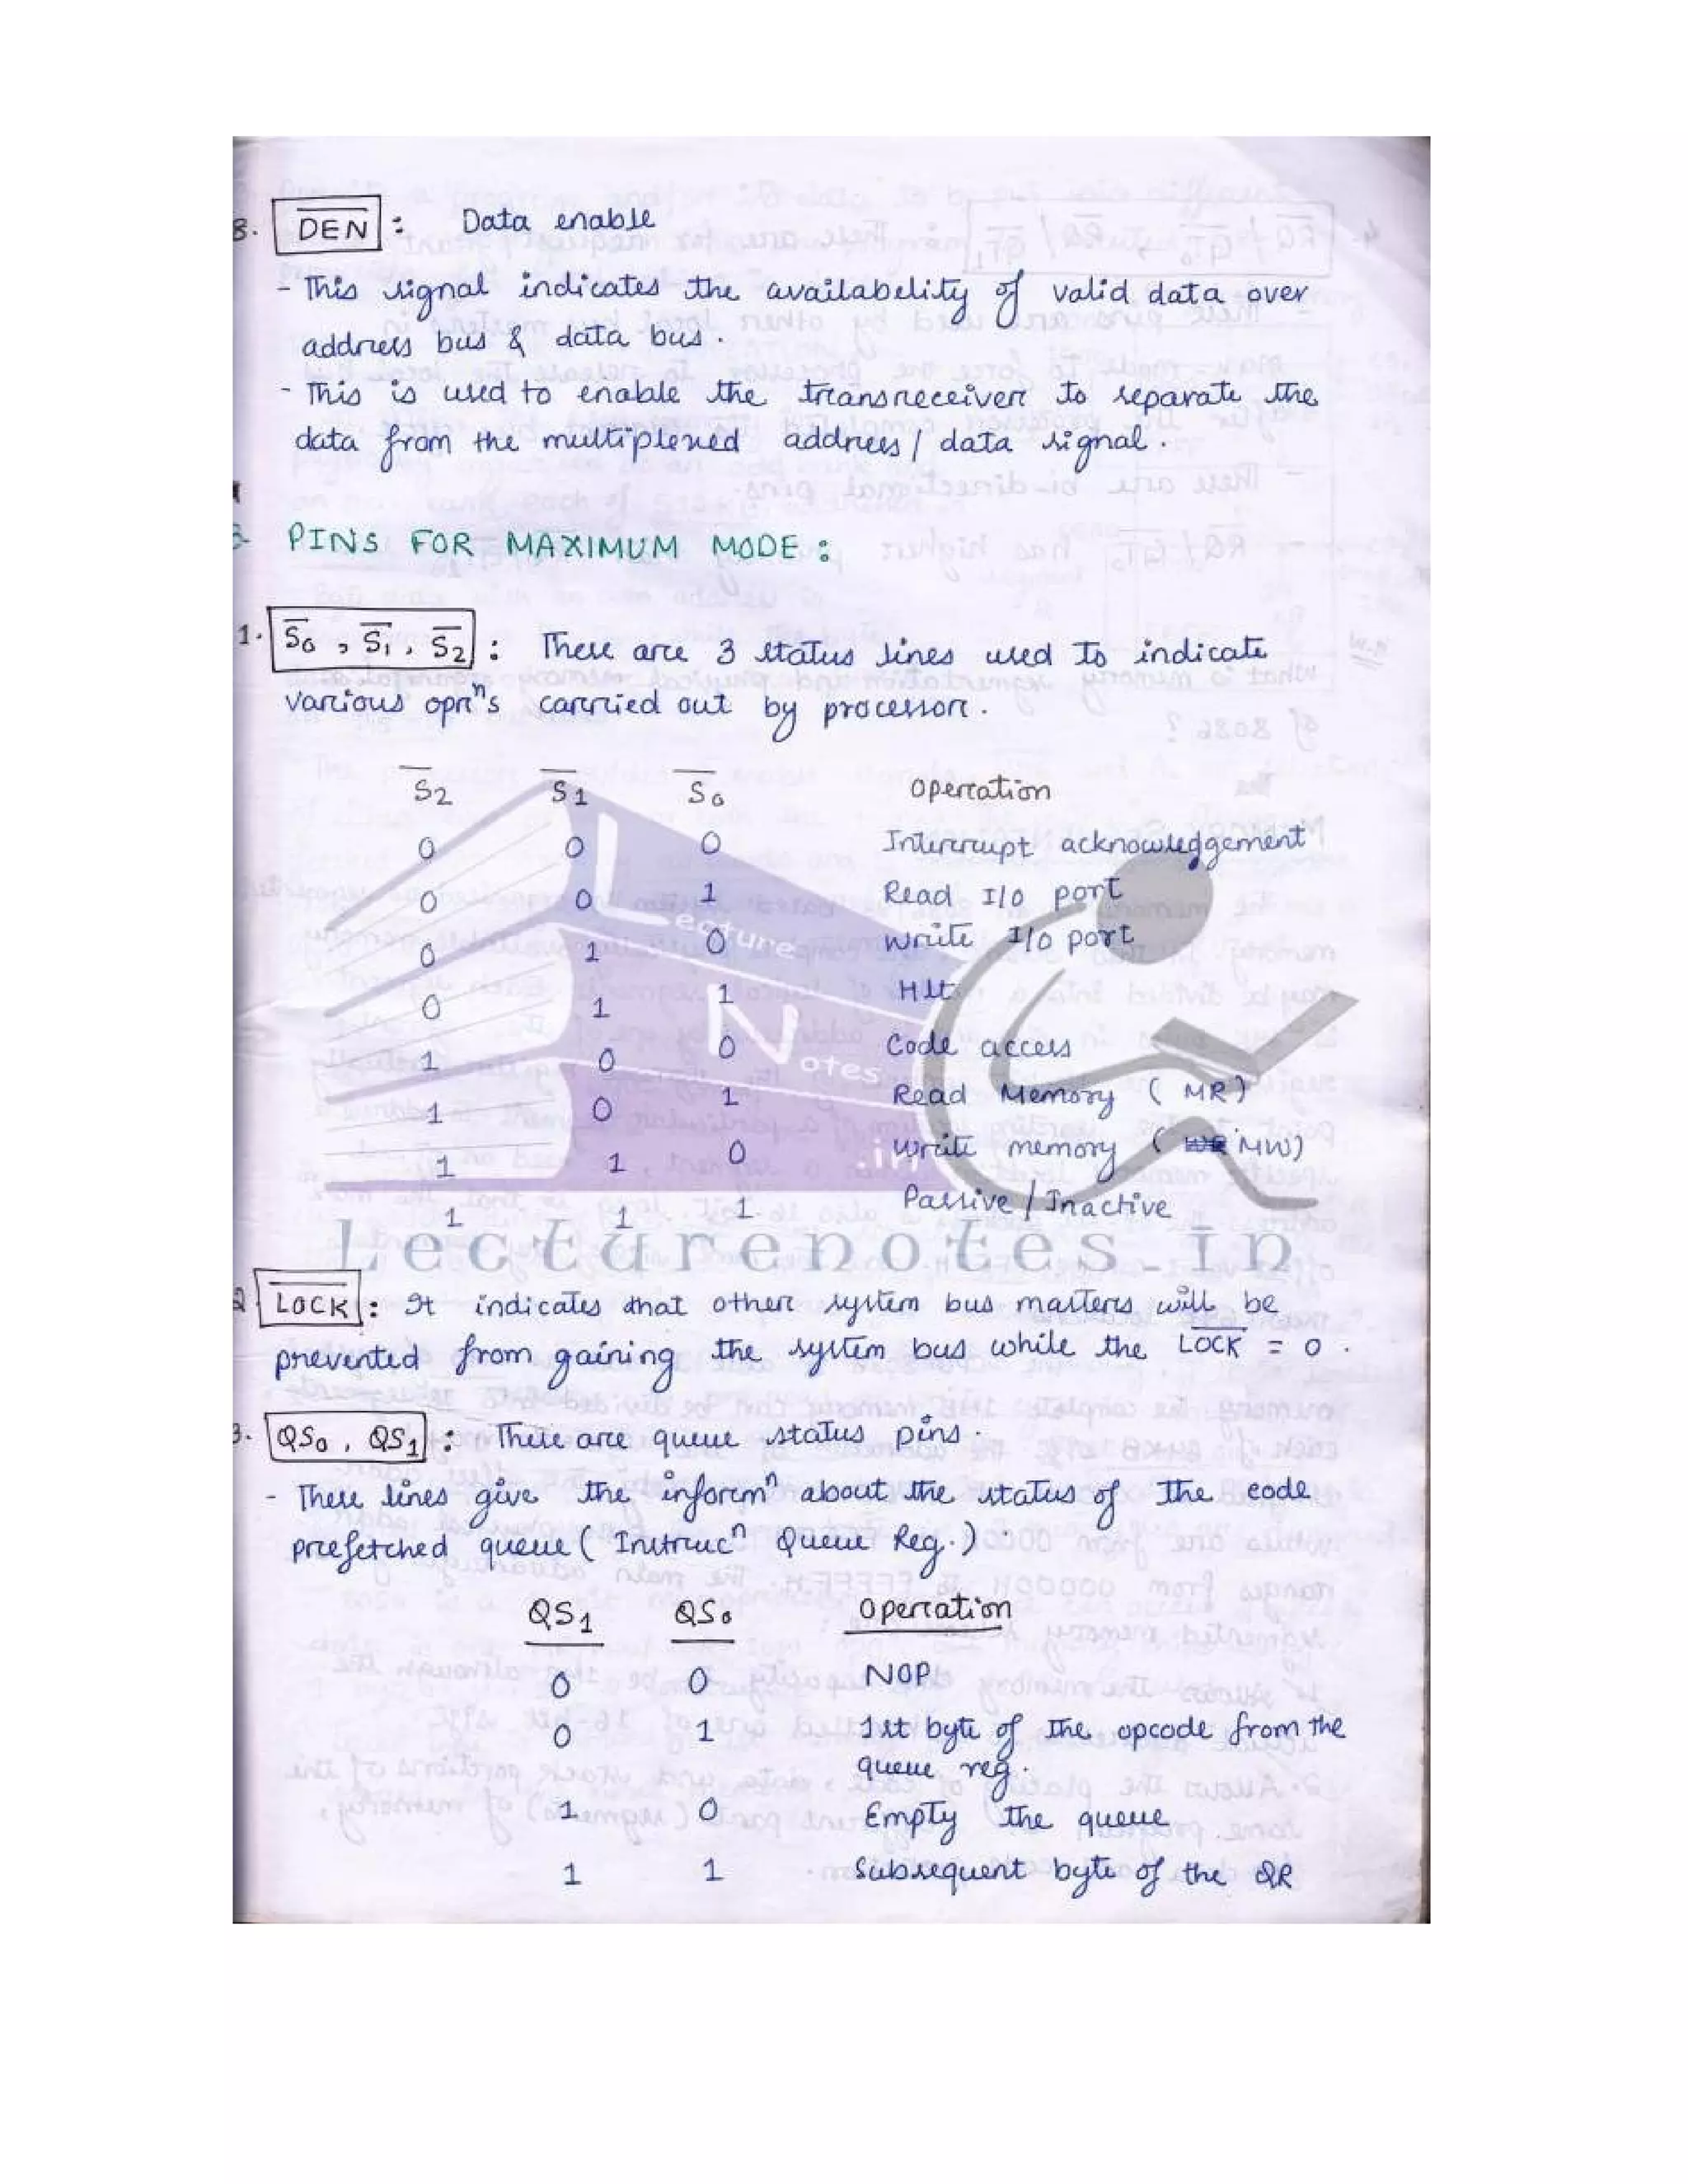 8. DEN : Data enable
- This signal indicates the availabelity of valid data over
address bus & data bus.
- This is used to enable the transreceiver to separate the
data from the multiplexed address / data signal.
PINS FOR MAXIMUM MODE :
1. S0 , S1 , S2 : These are 3 status lines used to indicate
various oprⁿs carried out by processor.
S2 S1 S0 operation
0 0 0 Interrupt acknowledgement
0 0 1 Read I/O port
0 1 0 write I/O port
0 1 1 Hlt
1 0 0 Code access
1 0 1 Read Memory ( MR )
1 1 0 write memory ( MW)
1 1 1 Passive / Inactive
Lecture
Notes
.in
Lecturenotes.in
2 LOCK : It indicates that other system bus masters will be
prevented from gaining the system bus while the LOCK = 0 .
3. QS0 , QS1 : There are queue status pins.
- These lines give the informⁿ about the status of the code
prefetched queue ( Instrucⁿ Queue Reg. ) .
QS1 QS0 Operation
0 0 NOP
0 1 1st byte of the opcode from the
queue reg.
1 0 Empty the queue
1 1 Subsequent byte of the QR